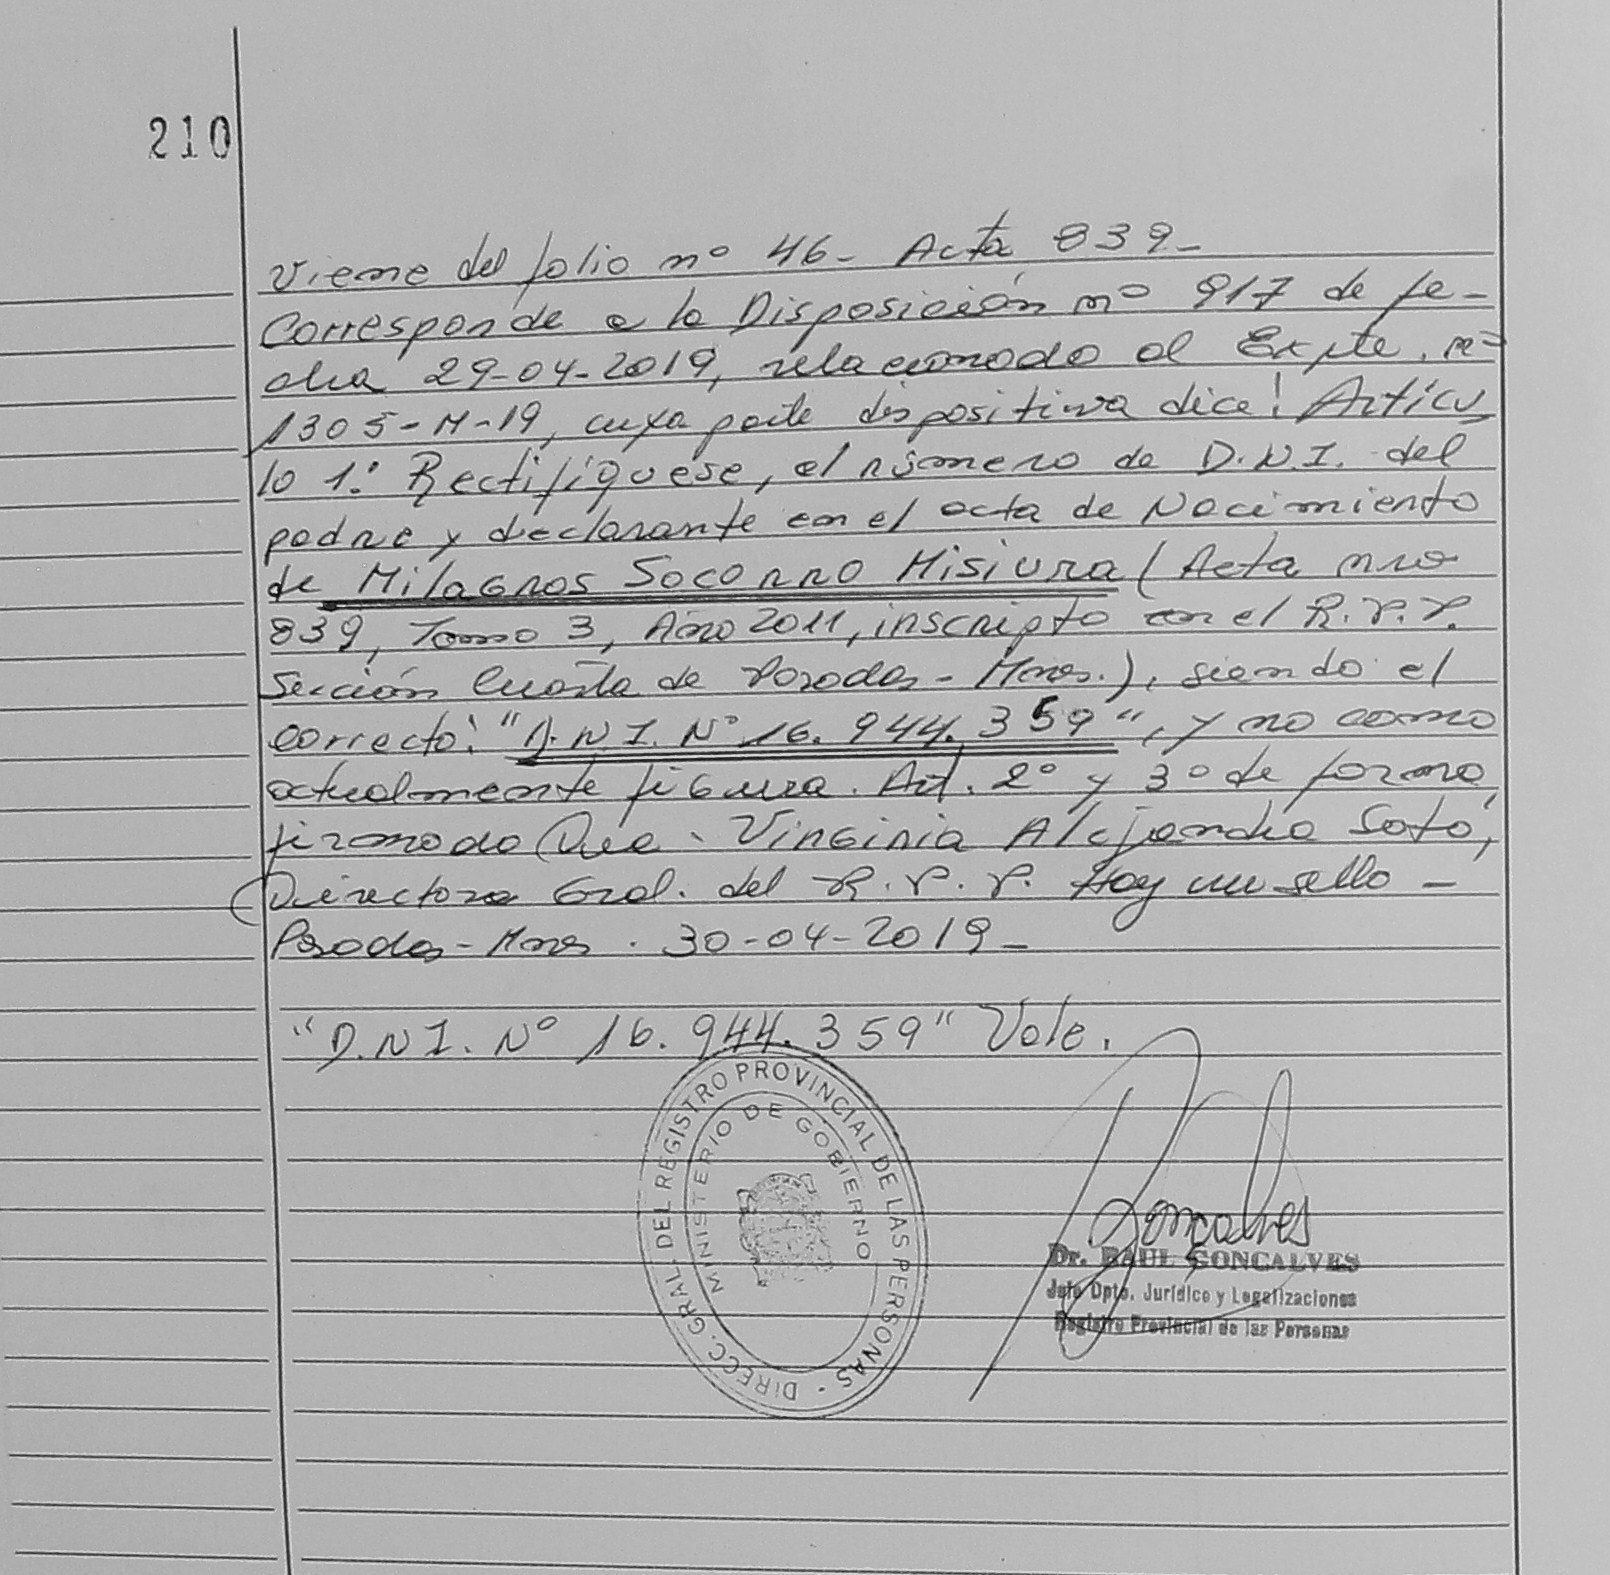 210
Viene del folio nº 46- Acta 839-
Corresponde a la Disposición nº 917 de fe-
cha 29-04-2019, relacionado al Expte. nº
1305-M-19, cuya parte dispositiva dice: Artícu
lo 1º: Rectifíquese, el número de D.N.I. del
padre y declarante en el acta de Nacimiento
de Milagros Socorro Misiura (Acta nro
839, Tomo 3, Año 2011, inscripto en el R.P.P.
Sección Cuarta de Posadas- Mnes.), siendo el
correcto: "D.N.I. Nº 16.944.359", y no como
actualmente figura. Art. 2º y 3º de forma,
firmado Dra. Virginia Alejandra Soto,
Directora Gral. del R.P.P. Hay un sello -
Posadas-Mnes. 30-04-2019-
"D.N.I. Nº 16.944.359" Vale.
DIRECC. GRAL. DEL REGISTRO PROVINCIAL DE LAS PERSONAS -
MINISTERIO DE GOBIERNO
Goncalves
Dr. RAUL GONCALVES
Jefe Dpto. Jurídico y Legalizaciones
Registro Provincial de las Personas